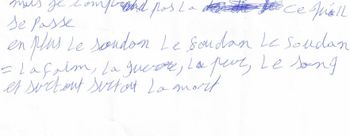 mais je comprend pas la ce qu'il
se passe
en plus Le soudan Le soudan Le soudan
= La faim, La guerre, La peur, Le sang
et surtout surtout La mort